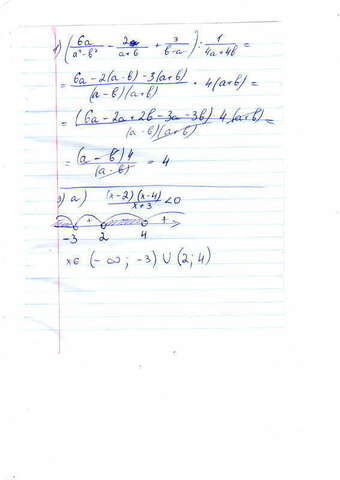 1) (6a/(a²-b²) - 2a/(a+b) + 3/(b-a)) : 1/(4a+4b) =
= (6a-2(a-b)-3(a+b))/((a-b)(a+b)) · 4(a+b) =
= ((6a-2a+2b-3a-3b) 4(a+b))/((a-b)(a+b)) =
= ((a-b)4)/(a-b) = 4
3) a) ((x-2)(x-4))/(x+3) <0
+ +
-3 2 4
x∈ (-∞; -3) ∪ (2; 4)